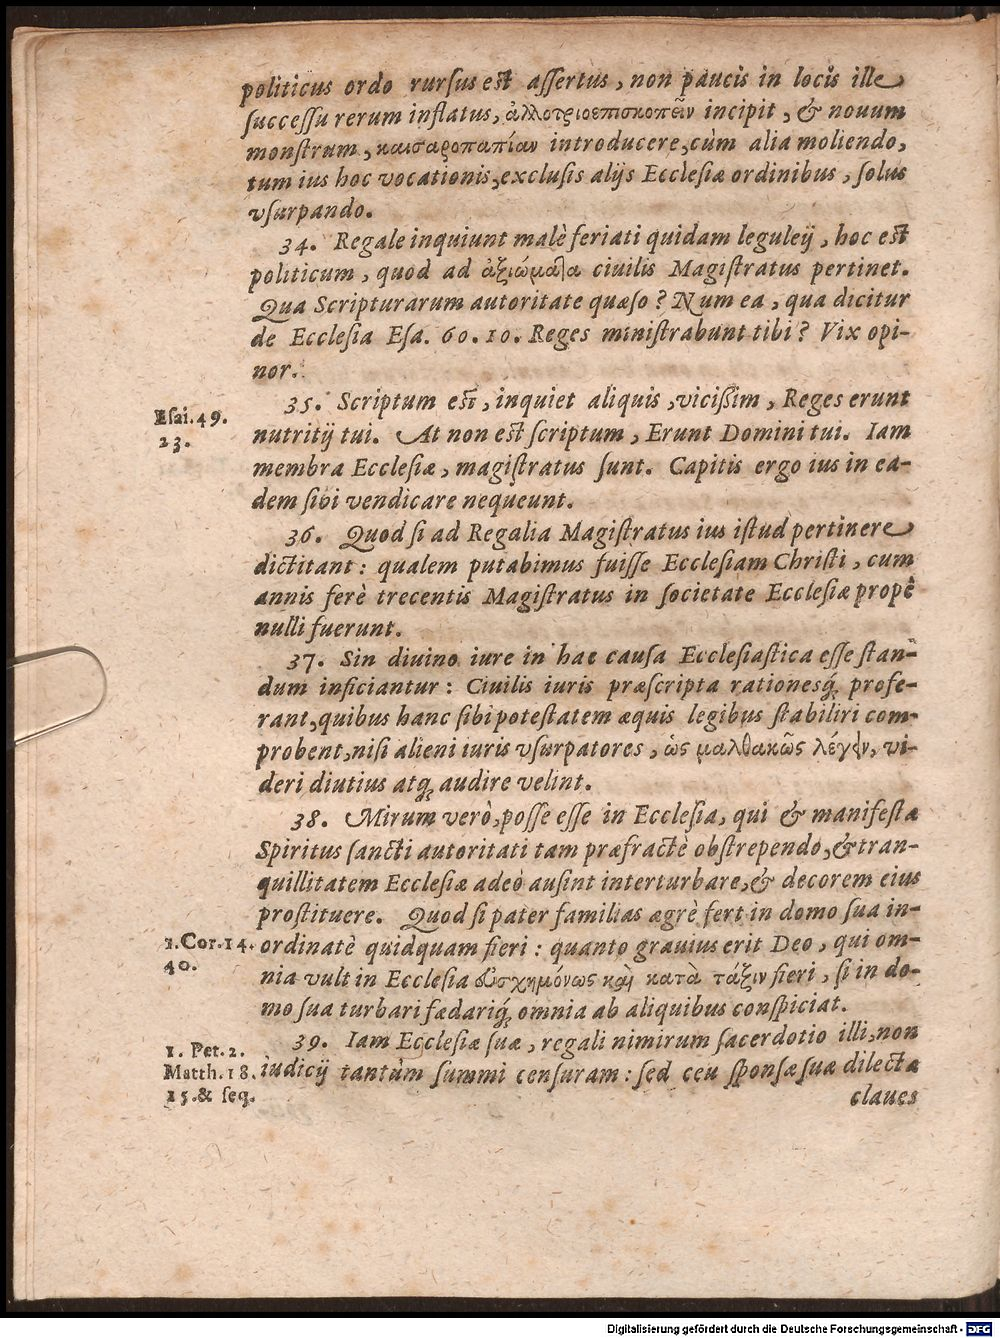 politicus ordo rursus est assertus, non paucis in locis ille
successu rerum inflatus, ἀλλοτριοεπισκοπεῖν incipit, & nouum
monstrum, καισαροπαπίαν introducere, cùm alia moliendo,
tum ius hoc vocationis, exclusis alijs Ecclesiæ ordinibus, solus
vsurpando.
34. Regale inquiunt malè feriati quidam leguleij, hoc est
politicum, quod ad ἀξιώματα ciuilis Magistratus pertinet.
Qua Scripturarum autoritate quæso? Num ea, qua dicitur
de Ecclesia Esa. 60.10. Reges ministrabunt tibi? Vix opi-
nor.
Esai.49.
23.
35. Scriptum est, inquiet aliquis, vicissim, Reges erunt
nutritij tui. At non est scriptum, Erunt Domini tui. Iam
membra Ecclesiæ, magistratus sunt. Capitis ergo ius in ea-
dem sibi vendicare nequeunt.
36. Quod si ad Regalia Magistratus ius istud pertinere
dictitant: qualem putabimus fuisse Ecclesiam Christi, cum
annis ferè trecentis Magistratus in societate Ecclesiæ propè
nulli fuerunt.
37. Sin diuino iure in hac causa Ecclesiastica esse stan-
dum inficiantur: Ciuilis iuris præscripta rationesq́; profe-
rant, quibus hanc sibi potestatem æquis legibus stabiliri com-
probent, nisi alieni iuris vsurpatores, ὡς μαλθακῶς λέγειν, vi-
deri diutius atq; audire velint.
38. Mirum verò, posse esse in Ecclesia, qui & manifestæ
Spiritus sancti autoritati tam præfractè obstrependo, & tran-
quillitatem Ecclesiæ adeò ausint interturbare, & decorem eius
prostituere. Quod si pater familias ægrè fert in domo sua in-
1.Cor.14.
40.
ordinatè quidquam fieri: quanto grauius erit Deo, qui om-
nia vult in Ecclesia εὐσχημόνως καὶ κατὰ τάξιν fieri, si in do-
mo sua turbari fœdariq́; omnia ab aliquibus conspiciat.
1. Pet.2.
Matth.18.
15.& seq.
39. Iam Ecclesiæ suæ, regali nimirum sacerdotio illi, non
iudicij tantùm summi censuram: sed ceu sponsæ suæ dilectæ
claues
Digitalisierung gefördert durch die Deutsche Forschungsgemeinschaft - DFG